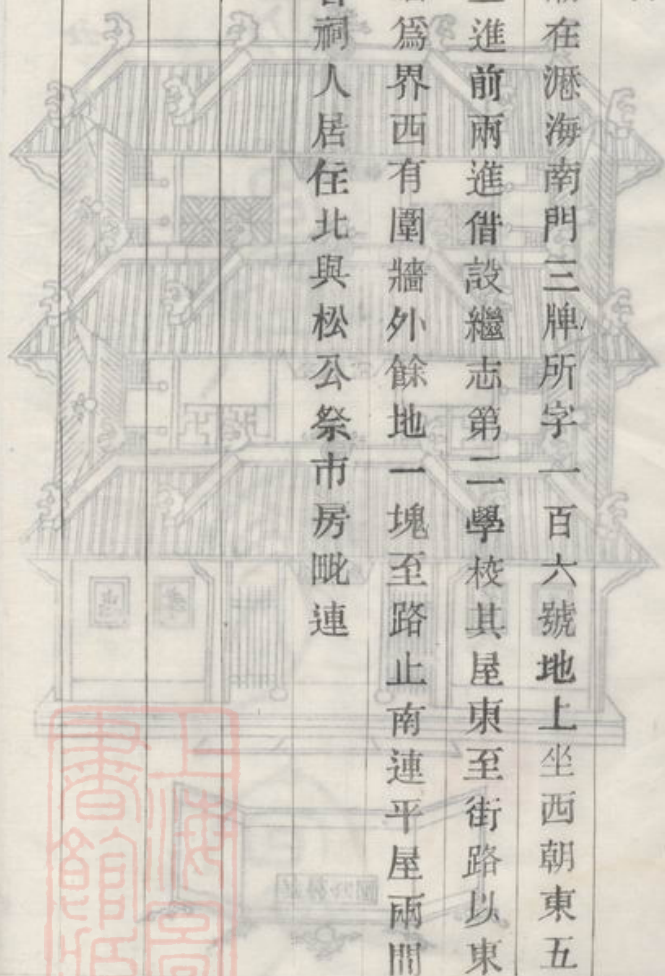 在瀝海南門三牌所字一百六號地上坐西朝東五
進前兩進借設繼志第二學校其屋東至街路以東
爲界西有圍牆外餘地一塊至路止南連平屋兩間
祠人居住北與松公祭市房毗連
上海圖
書館藏